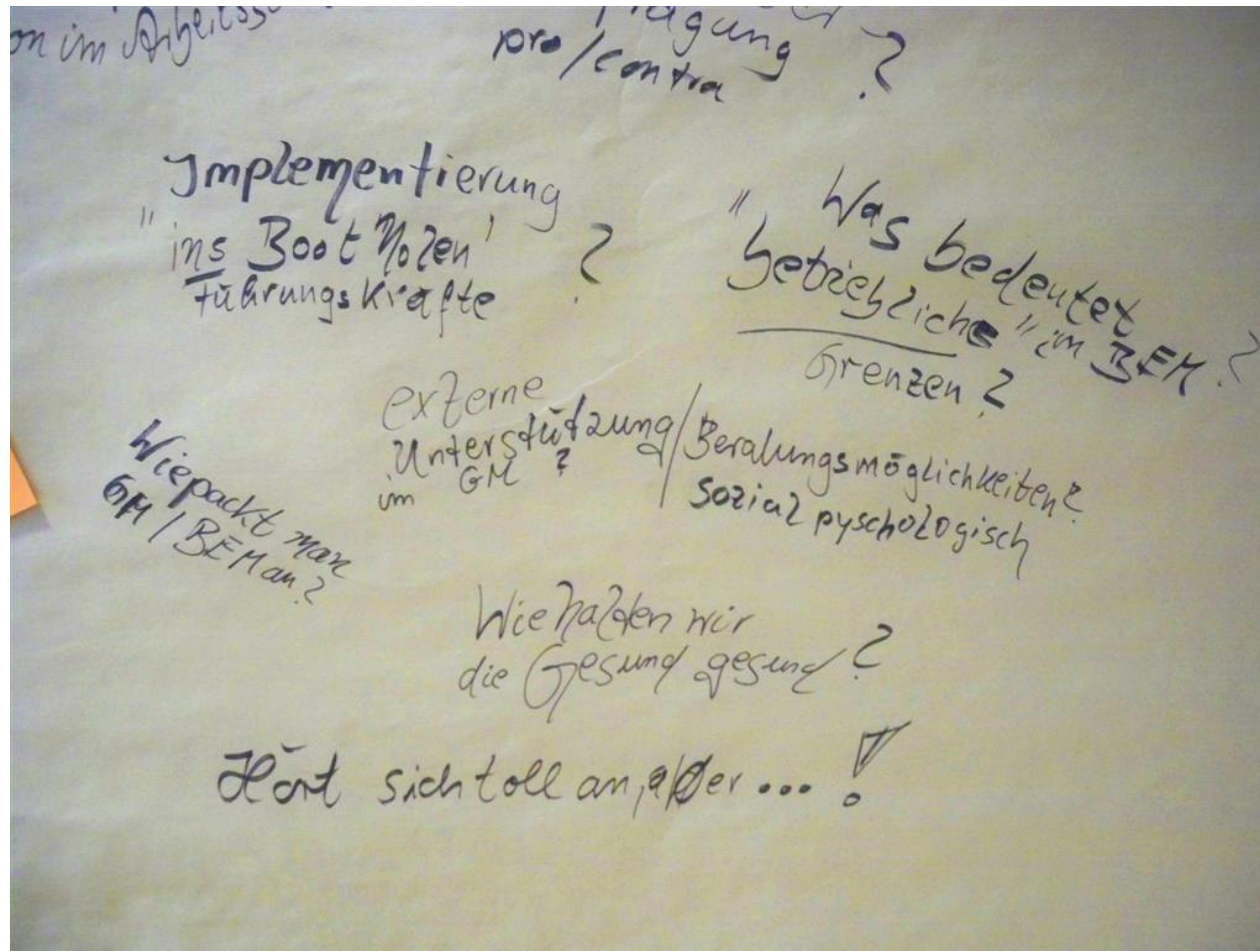 on im
pro/contra ?
Implementierung
"ins Boot holen' ?
Führungskräfte
"Was bedeutet
betriebliche" im BEM ?
Grenzen ?
externe
Unterstützung/Beratungsmöglichkeiten?
im GM ? sozial pyschologisch
Wie packt man
GM / BEM an?
Wie halten wir
die Gesund gesund ?
Hört sich toll an, aber ... !